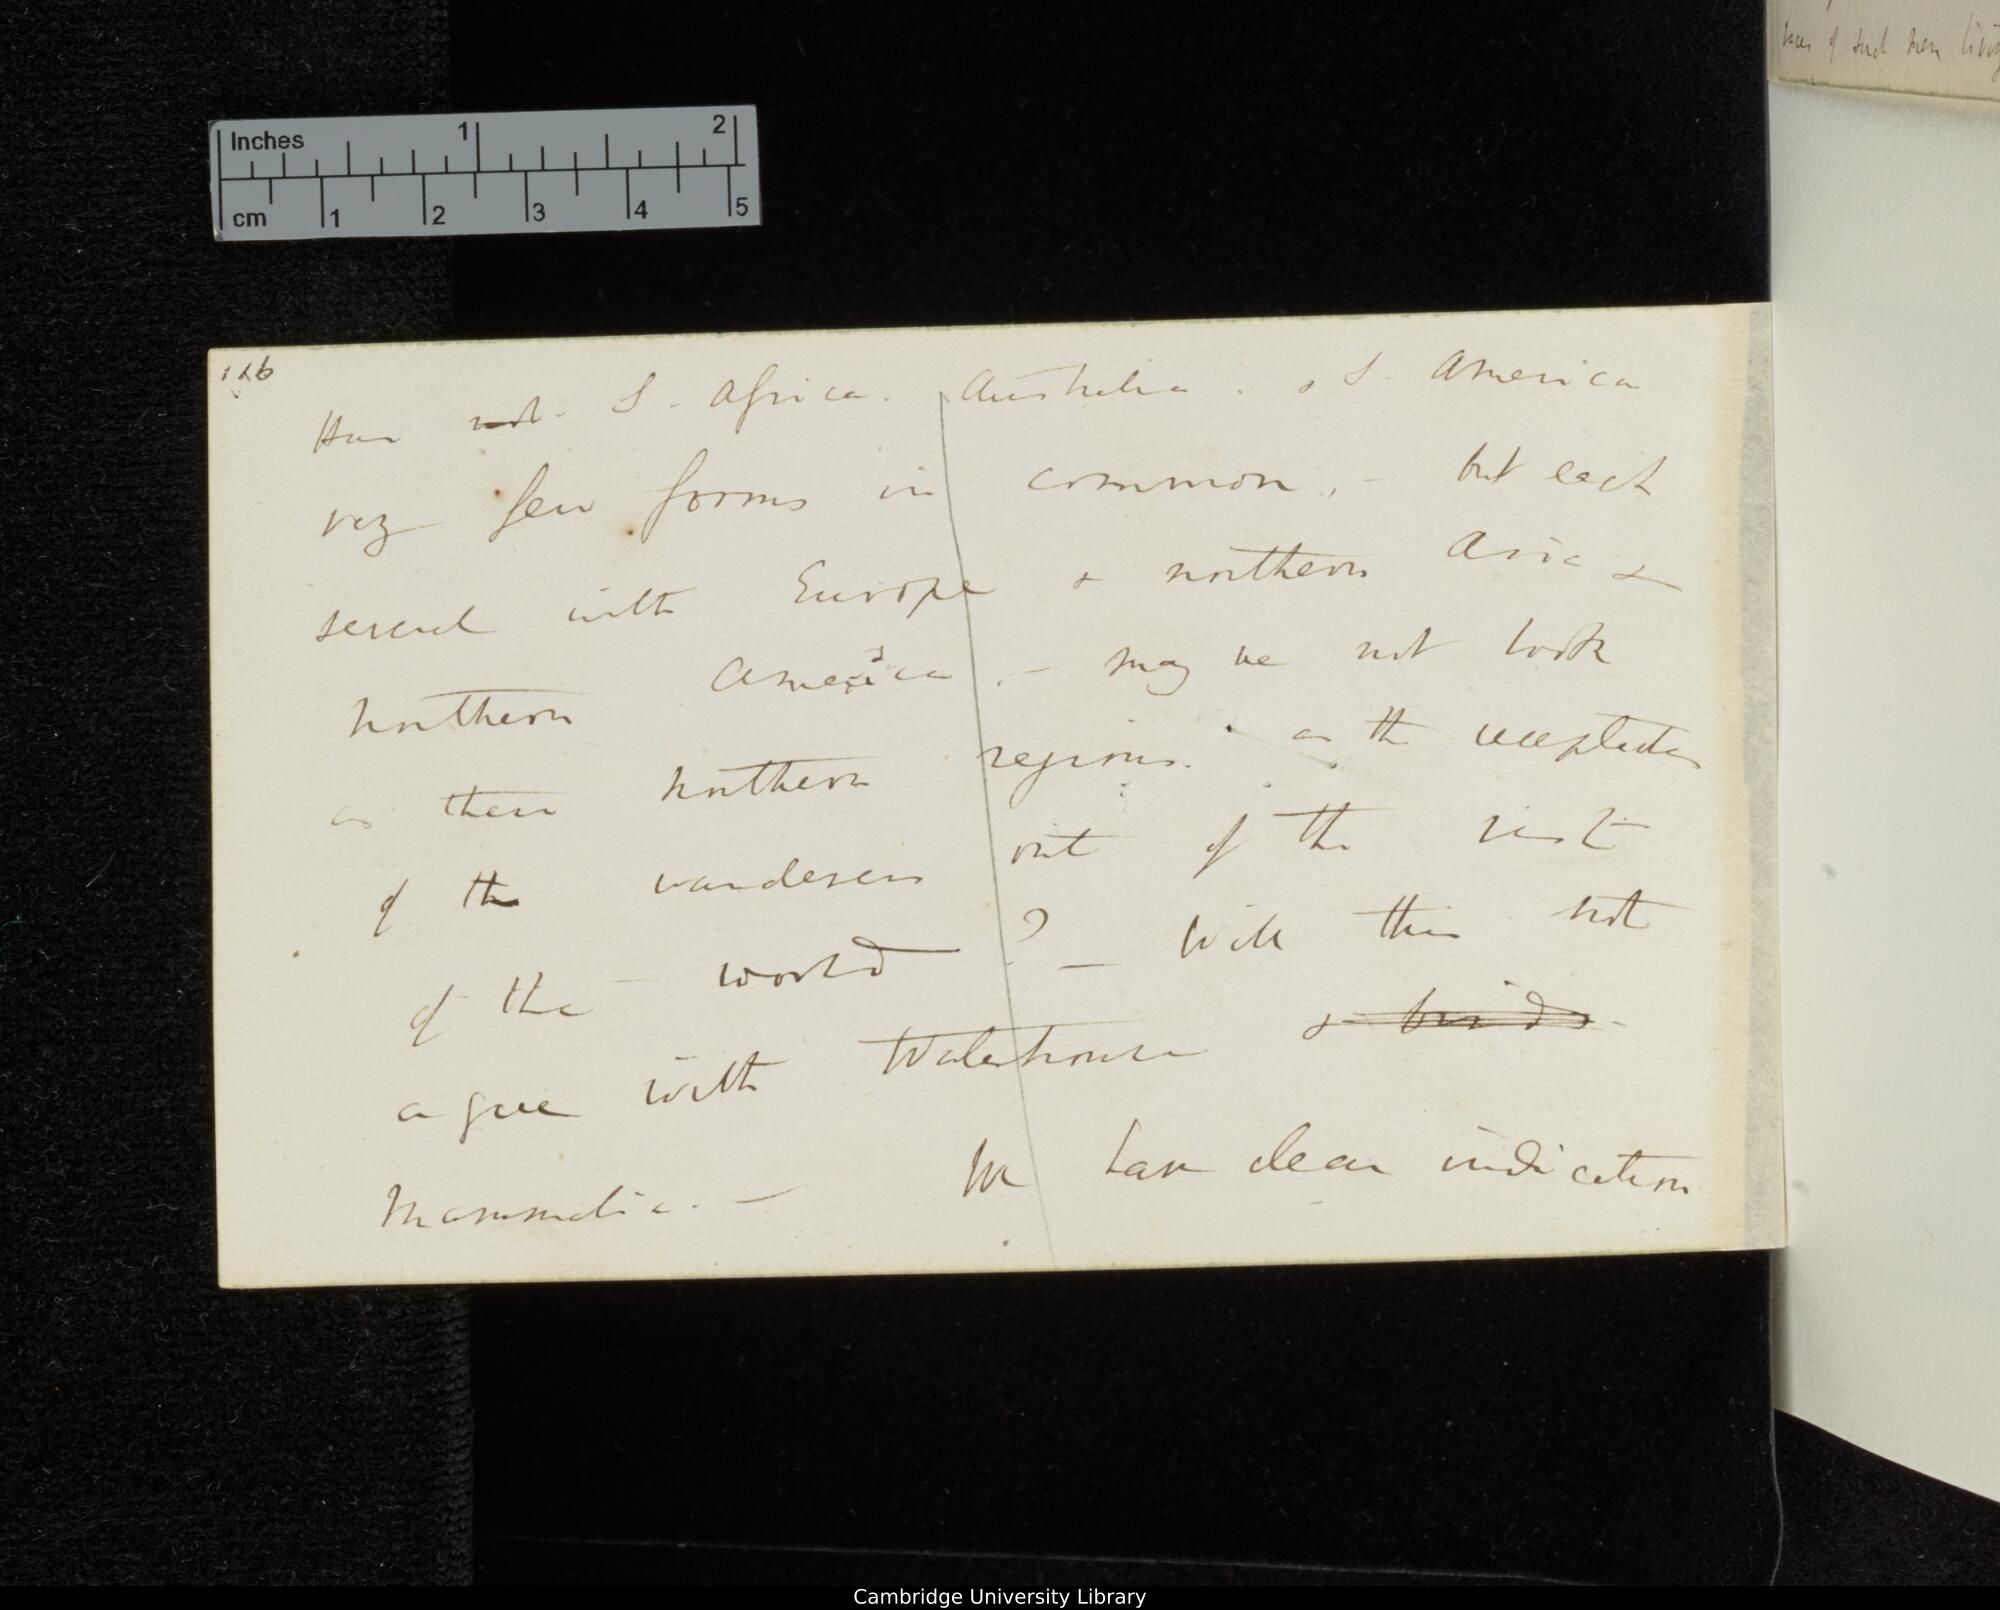 Inches 1 2
cm 1 2 3 4 5
126
Have not. S. Africa. Australia. & S. America
very few forms in common, – but each
several with Europe & northern Asia &
northern America, – may we not look
as these northern regions. as the receptacles
of the wanderers out of the rest
of the – world ? – Will this not
agree with Waterhouse & birds
Mammalia. – We have clear indication
of such men living
Cambridge University Library